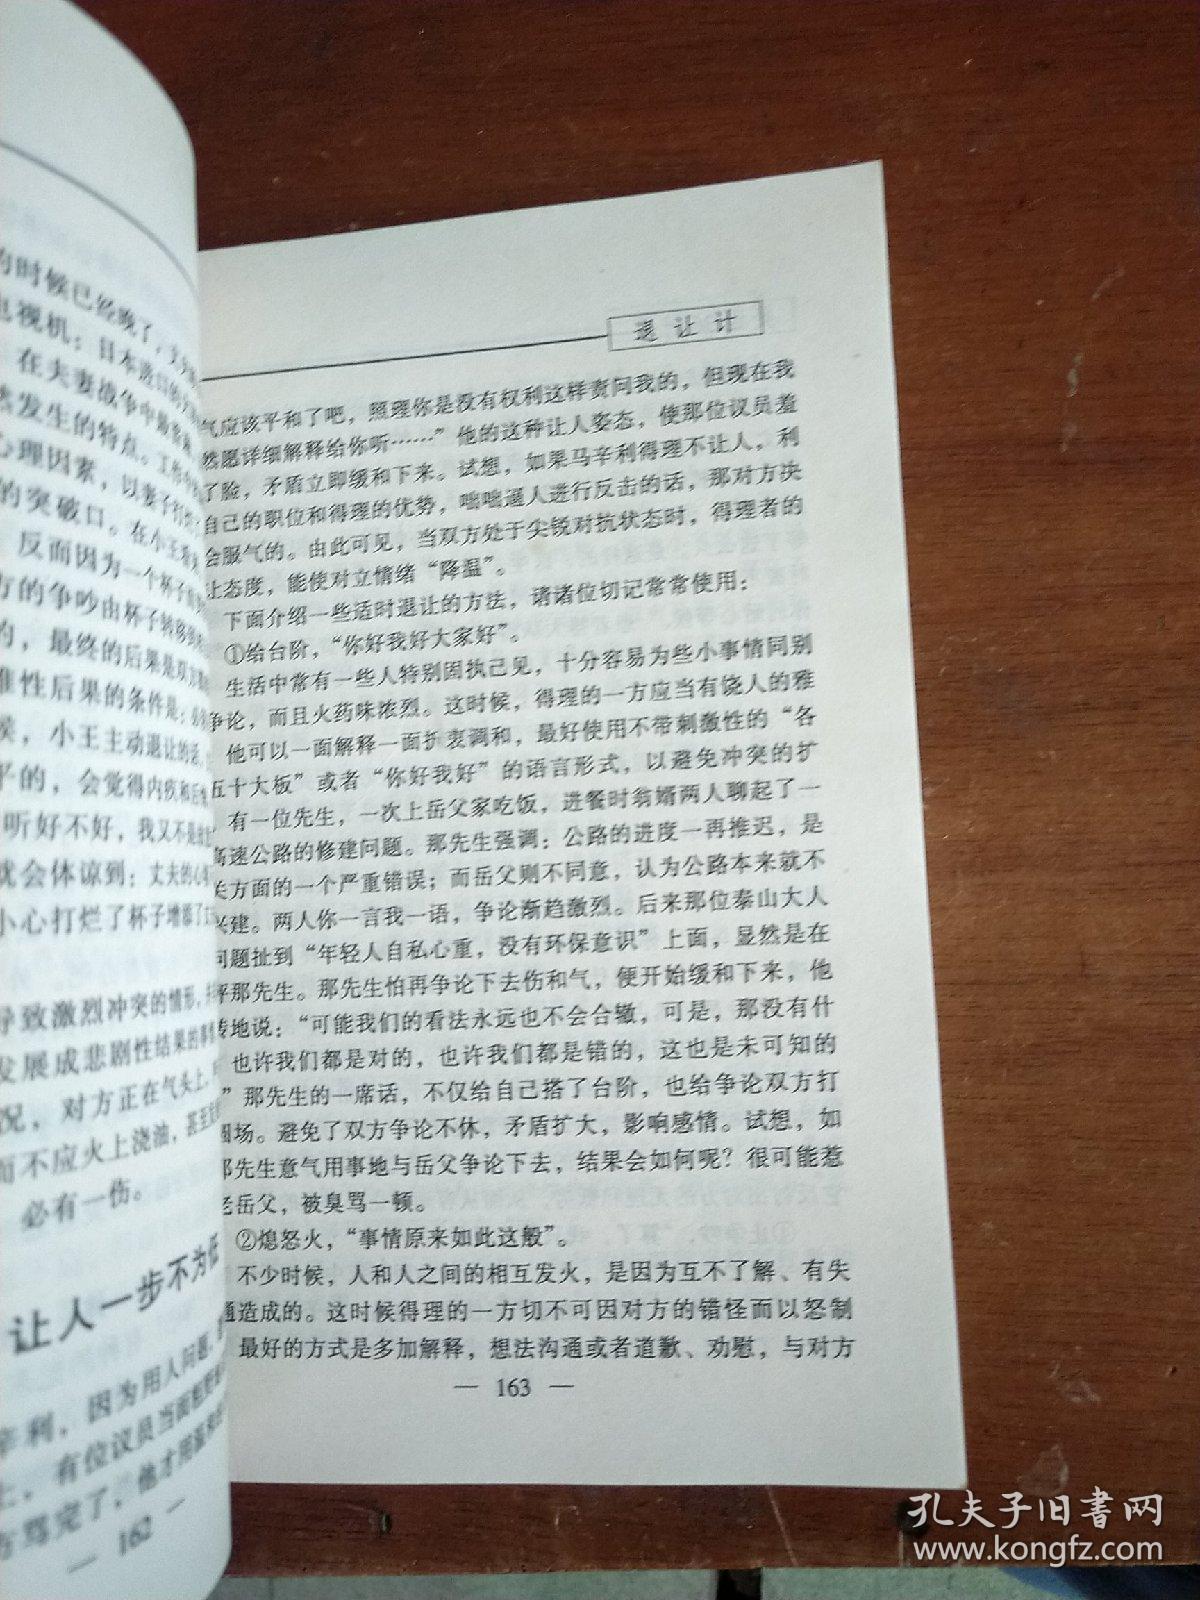 的时候已经晚了，
电视机：日本进口的
在夫妻战争中
然发生的特点。工作中
心理因素，以妻子打
的突破口。在小王
反而因为一个杯子
方的争吵由杯子转移
的，最终的后果是双方
性后果的条件是：
，小王主动退让的话，
平的，会觉得内疚和
听好不好，我又不是
就会体谅到：丈夫的心
小心打烂了杯子增添了
导致激烈冲突的情形，
发展成悲剧性结果的事
况，对方正在气头上，
而不应火上浇油，甚至
必有一伤。
让人一步不为低
辛利，因为用人问题，
上，有位议员当面粗野
方骂完了，他才用
— 162 —
退让计
气应该平和了吧，照理你是没有权利这样责问我的，但现在我
然愿详细解释给你听……”他的这种让人姿态，使那位议员羞
了脸，矛盾立即缓和下来。试想，如果马辛利得理不让人，利
自己的职位和得理的优势，咄咄逼人进行反击的话，那对方决
会服气的。由此可见，当双方处于尖锐对抗状态时，得理者的
让态度，能使对立情绪“降温”。
下面介绍一些适时退让的方法，请诸位切记常常使用：
①给台阶，“你好我好大家好”。
生活中常有一些人特别固执己见，十分容易为些小事情同别
争论，而且火药味浓烈。这时候，得理的一方应当有饶人的雅
他可以一面解释一面折衷调和，最好使用不带刺激性的“各
五十大板”或者“你好我好”的语言形式，以避免冲突的扩
有一位先生，一次上岳父家吃饭，进餐时翁婿两人聊起了一
高速公路的修建问题。那先生强调：公路的进度一再推迟，是
关方面的一个严重错误；而岳父则不同意，认为公路本来就不
兴建。两人你一言我一语，争论渐趋激烈。后来那位泰山大人
问题扯到“年轻人自私心重，没有环保意识”上面，显然是在
评那先生。那先生怕再争论下去伤和气，便开始缓和下来，他
转地说：“可能我们的看法永远也不会合辙，可是，那没有什
也许我们都是对的，也许我们都是错的，这也是未可知的
”那先生的一席话，不仅给自己搭了台阶，也给争论双方打
圆场。避免了双方争论不休，矛盾扩大，影响感情。试想，如
那先生意气用事地与岳父争论下去，结果会如何呢？很可能惹
老岳父，被臭骂一顿。
②熄怒火，“事情原来如此这般”。
不少时候，人和人之间的相互发火，是因为互不了解、有失
通造成的。这时候得理的一方切不可因对方的错怪而以怒制
最好的方式是多加解释，想法沟通或者道歉、劝慰，与对方
— 163 —
孔夫子旧书网
www.kongfz.com